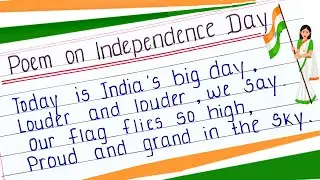 Poem on Independence Day
Today is India's big day,
Louder and louder, we say.
Our flag flies so high,
Proud and grand in the sky.